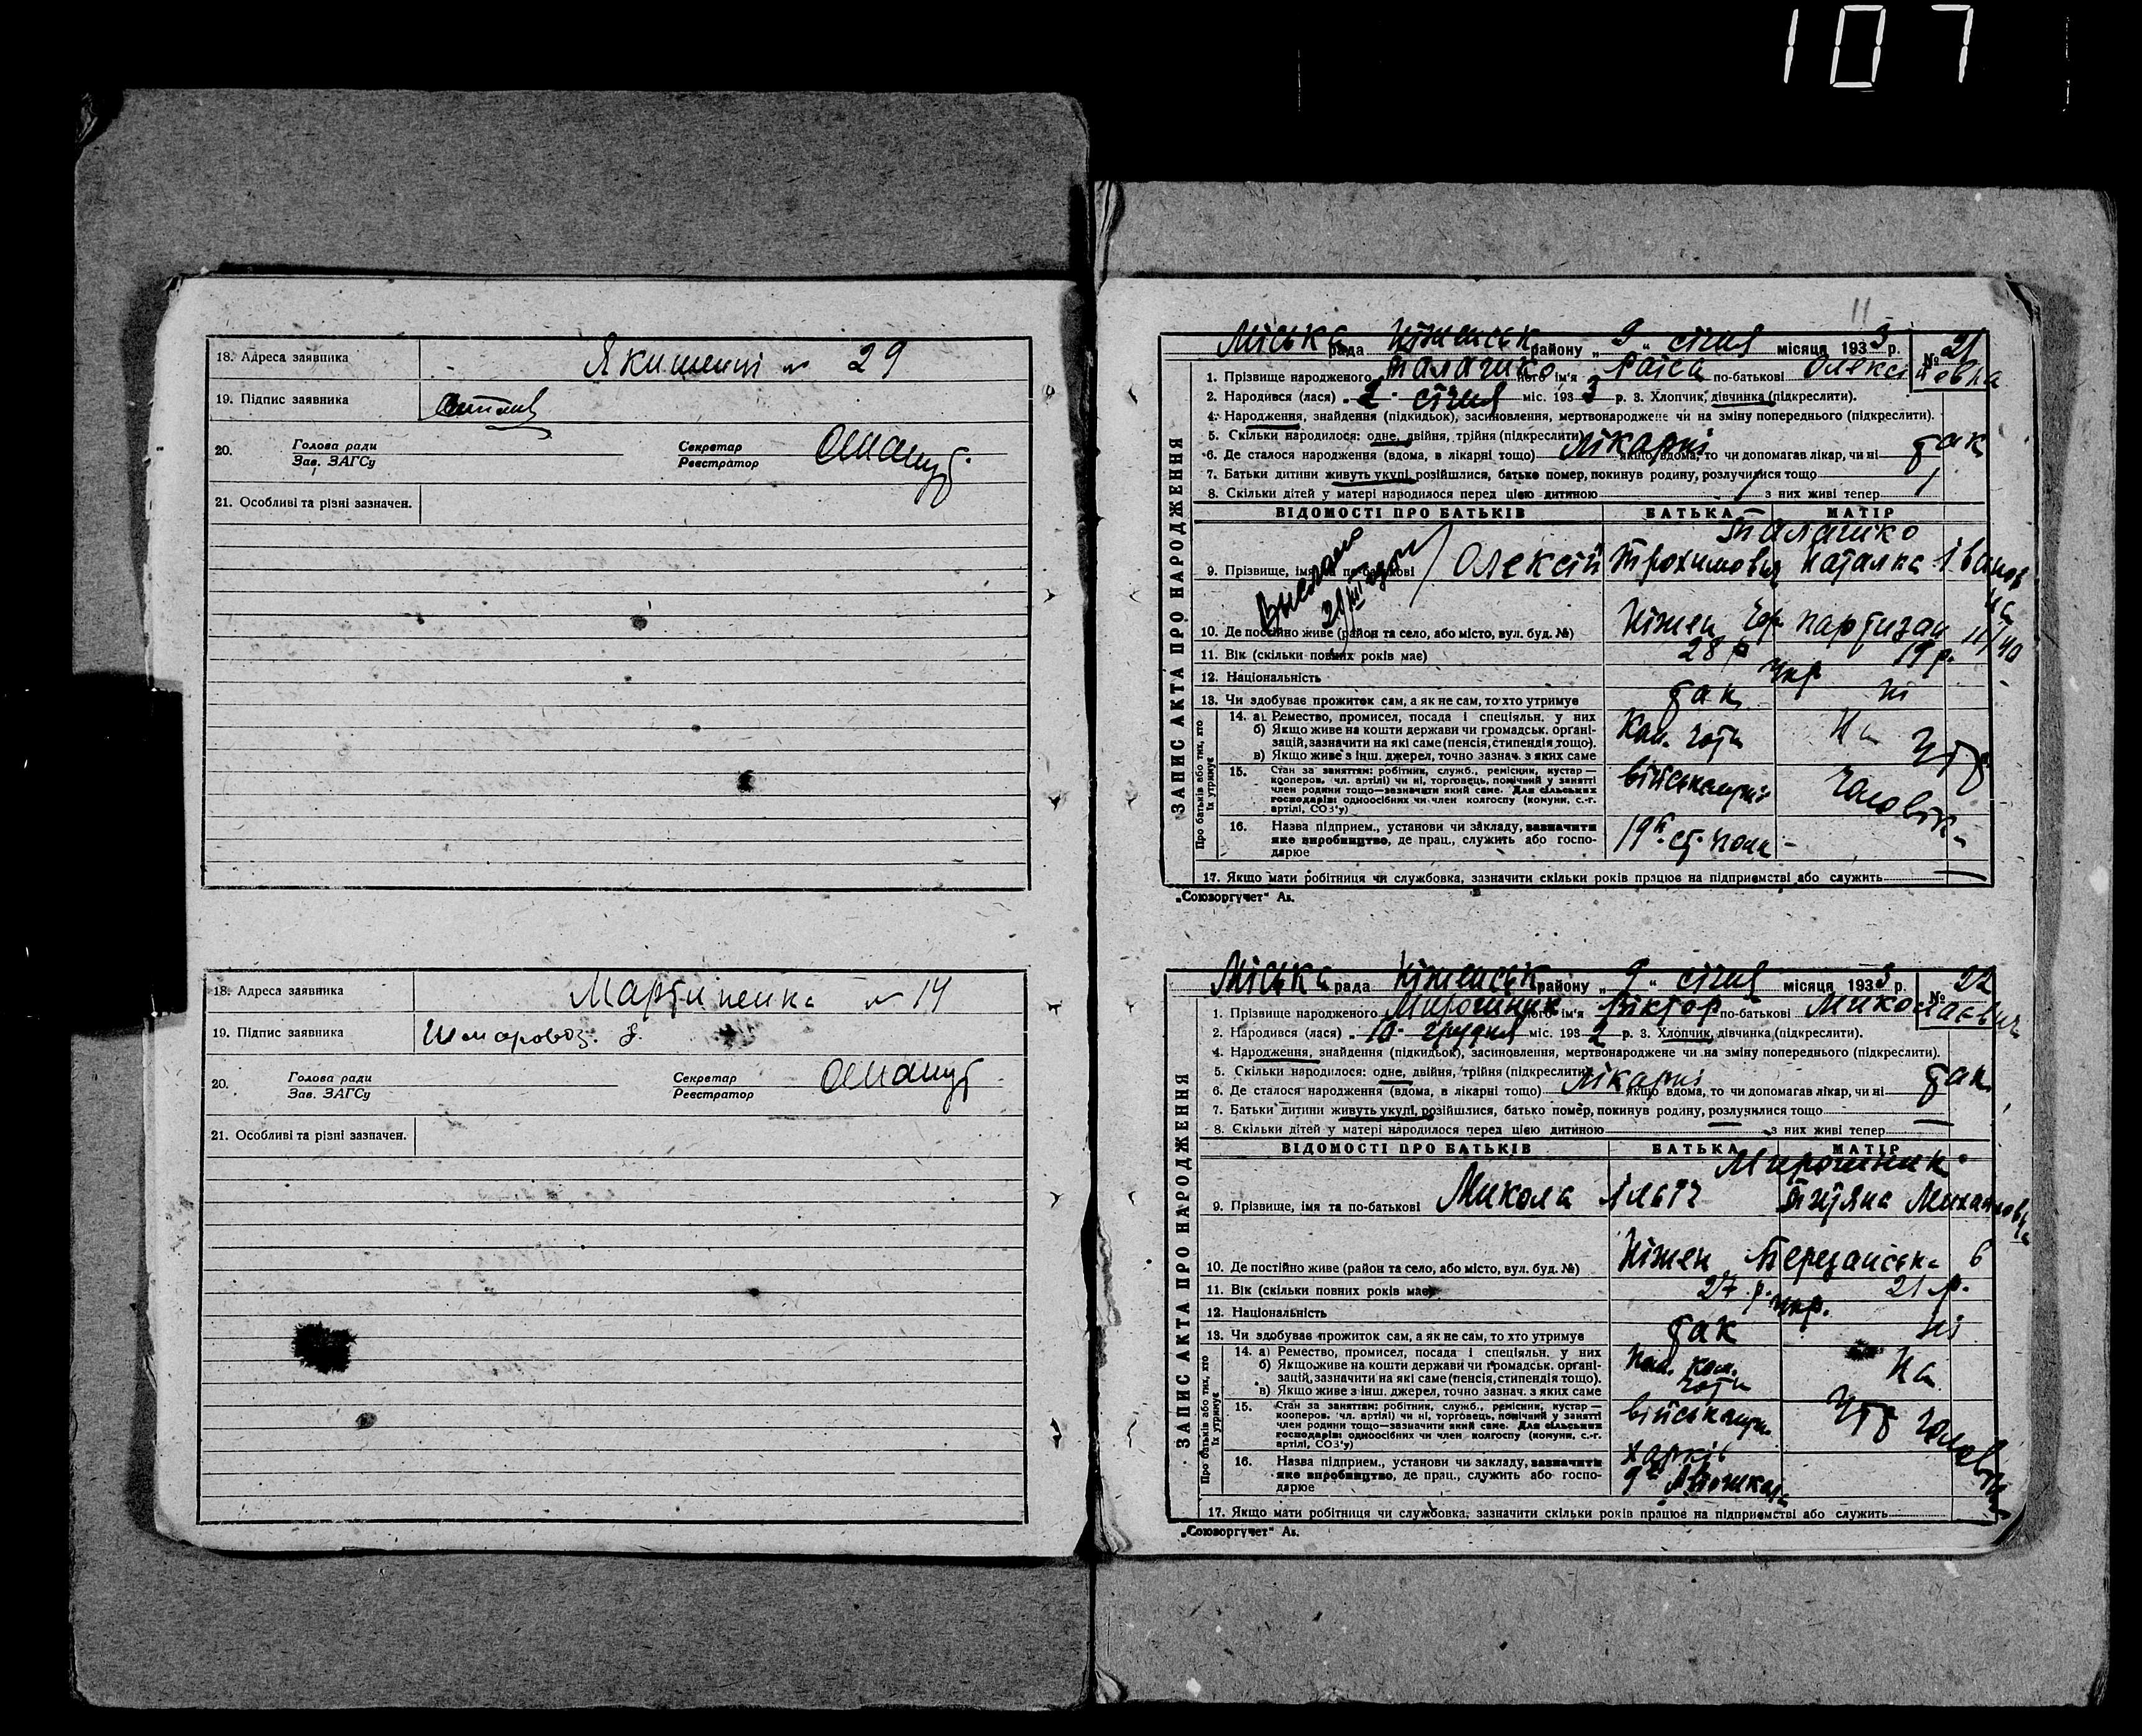 107
18. Адреса заявника Якименка № 29
19. Підпис заявника
20. Голова ради Зав. ЗАГСу Секретар Реєстратор
21. Особливі та різні зазначен.
18. Адреса заявника Мартиненка № 14
19. Підпис заявника Шмаровоз.
20. Голова ради Зав. ЗАГСу Секретар Реєстратор
21. Особливі та різні зазначен.
11
ЗАПИС АКТА ПРО НАРОДЖЕННЯ
Міська рада Ніженськ району „9“ січня місяця 1933 р. № 21
1. Прізвище народженого Талашко його ім'я Раїса по-батькові Олексіївна
2. Народився (лася) 2 січня міс. 1933 р. 3. Хлопчик, дівчинка (підкреслити).
4. Народження, знайдення (підкидьок), засиновлення, мертвонароджене чи на зміну попереднього (підкреслити).
5. Скільки народилося: одне, двійня, трійня (підкреслити)
6. Де сталося народження (вдома, в лікарні тощо) Лікарні якщо вдома, то чи допомагав лікар, чи ні так
7. Батьки дитини живуть укупі, розійшлися, батько помер, покинув родину, розлучилися тощо
8. Скільки дітей у матері народилося перед цією дитиною з них живі тепер
ВІДОМОСТІ ПРО БАТЬКІВ БАТЬКА МАТІР
Талашко
9. Прізвище, імя та по-батькові Олексій Трохимович Наталка Івановна
10. Де постійно живе (район та село, або місто, вул. буд. №) Ніжен партизан 11/40
11. Вік (скільки повних років має) 28 р 19 р.
12. Національність укр
13. Чи здобуває прожиток сам, а як не сам, то хто утримує так ні
Про батьків або тих, хто їх утримує
14. а) Ремество, промисел, посада і спеціяльн. у них
б) Якщо живе на кошти держави чи громадськ. органі-
зацій, зазначити на які саме (пенсія, стипендія тощо).
в) Якщо живе з інш. джерел, точно зазнач. з яких саме
Ком. роти На утр
15. Стан за заняттям: робітник, служб., ремісник, кустар —
кооперов. чл. артілі) чи ні, торговець, помічний у занятті
член родини тощо—зазначити який саме. Для сільських
господарів: одноосібних чи член колгоспу (комуни, с.-г.
артілі, СОЗ'у)
чоловіка
16. Назва підприєм., установи чи закладу, зазначити
яке виробництво, де прац., служить або госпо-
дарює
19й ст. полк
17. Якщо мати робітниця чи службовка, зазначити скільки років працює на підприємстві або служить
„Союзоргучет“ Ав.
ЗАПИС АКТА ПРО НАРОДЖЕННЯ
Міська рада Ніженськ району „9“ січня місяця 1933 р. № 22
1. Прізвище народженого Мирошник його ім'я Віктор по-батькові Миколаєвич
2. Народився (лася) 10 грудня міс. 1932 р. 3. Хлопчик, дівчинка (підкреслити).
4. Народження, знайдення (підкидьок), засиновлення, мертвонароджене чи на зміну попереднього (підкреслити).
5. Скільки народилося: одне, двійня, трійня (підкреслити)
6. Де сталося народження (вдома, в лікарні тощо) Лікарні якщо вдома, то чи допомагав лікар, чи ні так
7. Батьки дитини живуть укупі, розійшлися, батько помер, покинув родину, розлучилися тощо
8. Скільки дітей у матері народилося перед цією дитиною — з них живі тепер —
ВІДОМОСТІ ПРО БАТЬКІВ БАТЬКА МАТІР
Мирошник
9. Прізвище, імя та по-батькові Микола Ілліч Тетяна Михайловна
10. Де постійно живе (район та село, або місто, вул. буд. №) Ніжен Березанська 6
11. Вік (скільки повних років має) 27 р. 21 р.
12. Національність укр.
13. Чи здобуває прожиток сам, а як не сам, то хто утримує так ні
Про батьків або тих, хто їх утримує
14. а) Ремество, промисел, посада і спеціяльн. у них
б) Якщо живе на кошти держави чи громадськ. органі-
зацій, зазначити на які саме (пенсія, стипендія тощо).
в) Якщо живе з інш. джерел, точно зазнач. з яких саме
роти На утр чоловіка
15. Стан за заняттям: робітник, служб., ремісник, кустар —
кооперов. чл. артілі) чи ні, торговець, помічний у занятті
член родини тощо—зазначити який саме. Для сільських
господарів: одноосібних чи член колгоспу (комуни, с.-г.
артілі, СОЗ'у)
16. Назва підприєм., установи чи закладу, зазначити
яке виробництво, де прац., служить або госпо-
дарює
Харків
17. Якщо мати робітниця чи службовка, зазначити скільки років працює на підприємстві або служить
„Союзоргучет“ Ав.